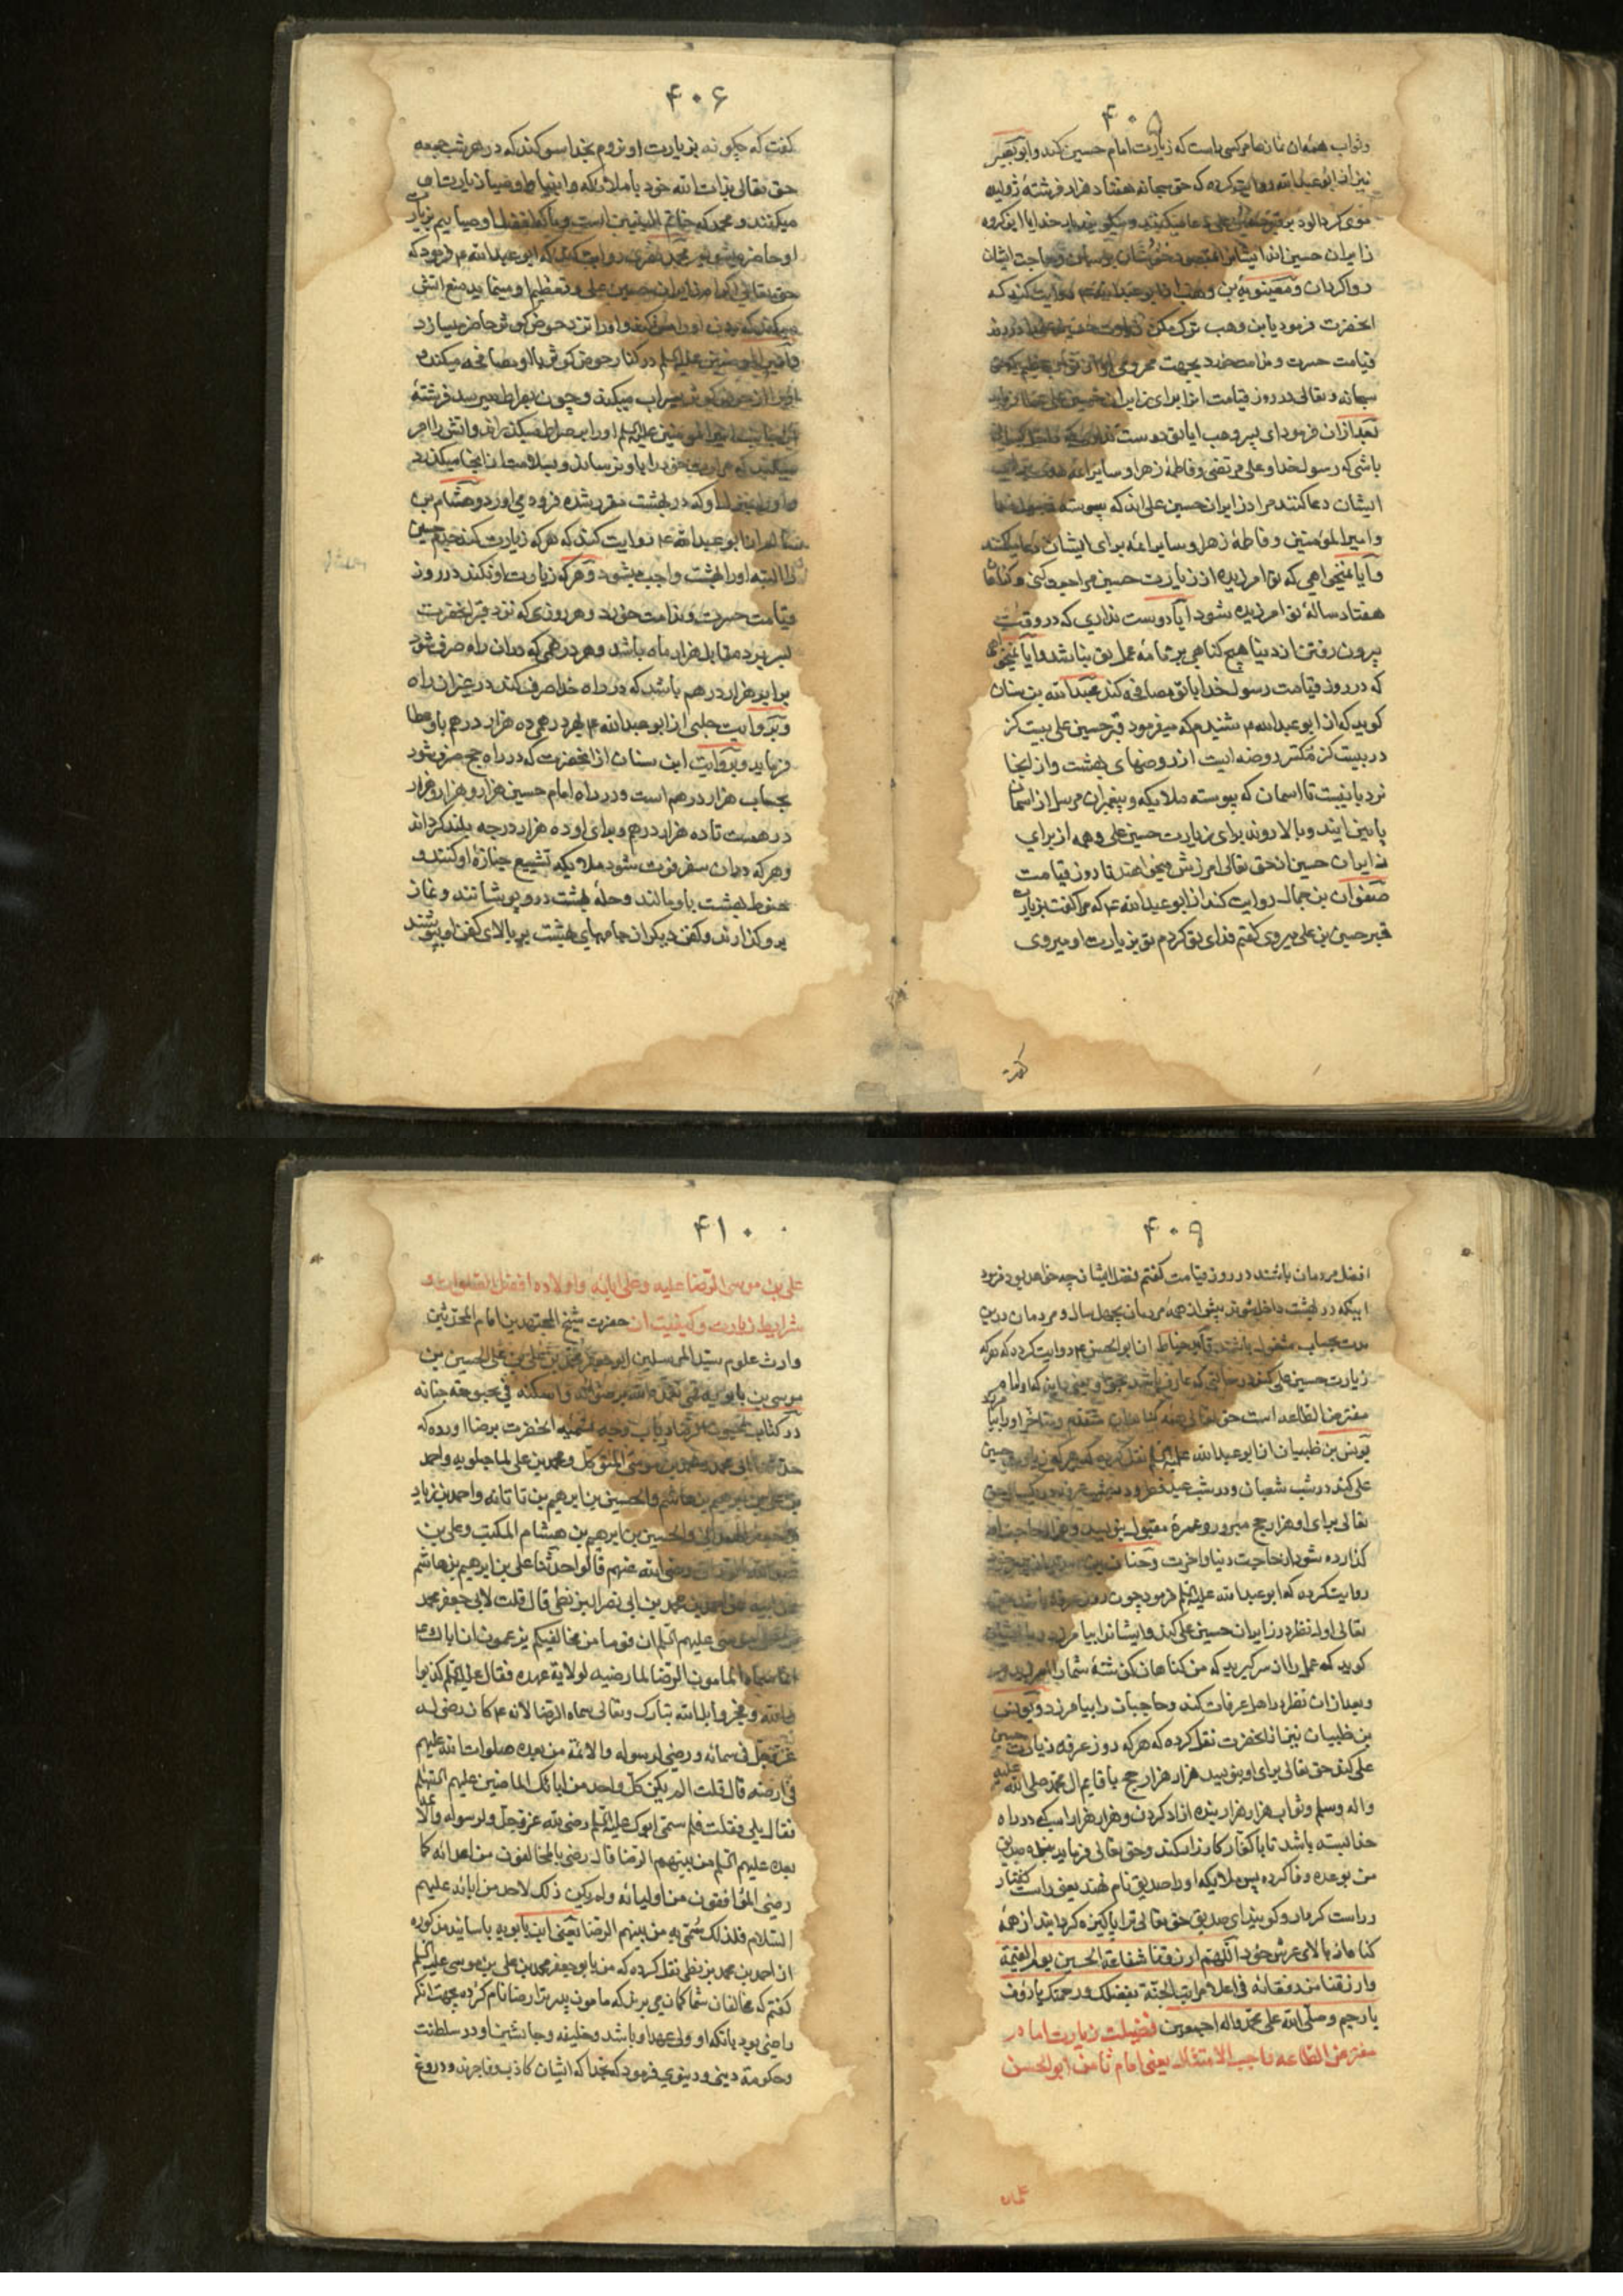 ۴۰۵
وثواب همه‌ان نمازها مرکسی راست که زیارت امام حسین کند وابو بصیر
نیز از ابو عبدالله روایت کرده که حق سبحانه هفتاد هزار فرشته ژولیده
موی کرد الود بر قبر حسین علی دعا میکنند و میکویند بار خدایا این کروه
زایران حسین اند ایشانرا بمقصود خودشان برسان و حاجت ایشان
روا کردان و معویة بن وهب از ابو عبدالله روایت کند که
انحضرت فرمود یابن وهب ترک مکن زیارت حسین علی را در روز
قیامت حسرت و ندامت خورد بجهت محرومی او از ثواب عظیم که حق
سبحانه وتعالی در روز قیامت از برای زایران حسین علی عطا فرماید
بعد ازان فرمود ای پسر وهب ایا تو دوست نداری که داخل کسانی
باشی که رسول خدا و علی مرتضی وفاطمهٔ زهرا و سایر ائمه هدی برای
ایشان دعا کنند مراد زایران حسین علی اند که پیوسته رسول خدا
وامیر المؤمنین و فاطمهٔ زهرا و سایر ائمه برای ایشان دعا میکنند
و آیا نمیخواهی که تو امرزیده از زیارت حسین مراجعت کنی و کناهان
هفتاد سالهٔ تو امرزیده شود ایا دوست نداری که در وقت
بیرون رفتن از دنیا هیچ کناهی بر نامهٔ عمل تو نباشد وایا نمیخواهی
که در روز قیامت رسول خدا با تو مصافحه کند عبدالله بن سنان
کوید که از ابو عبدالله ۴ شنیدم که میفرمود قبر حسین علی بیست کز
در بیست کز مکسر روضه ایست از روضهای بهشت و از انجا
نردبانیست تا اسمان که پیوسته ملایکه و پیغمبران مرسل از اسمان
پایین ایند و بالا روند برای زیارت حسین علی وهمه از برای
زایران حسین از حق تعالی امرزش میخواهند تا روز قیامت
صفوان بن جمال روایت کند از ابو عبدالله ۴ که مرا کفت بزیارت
قبر حسین بن علی میروی کفتم فدای تو کردم تو بزیارت او میروی
کفت
۴۰۶
کفت که چکونه بزیارت او نروم بخدا سوکند که در هر شب جمعه
حق تعالی بذات الله خود با ملائکه و انبیا و اوصیا زیارت او
میکنند و محمد که خاتم النبیین است و ما که افضل اوصیاییم بزیارت
او حاضر میشویم محمد بصری روایت کند که ابو عبدالله ۴ فرمود که
حق تعالی اکرام زایران حسین علی و تعظیم او مینماید منع اتش
میکند که بدن او را مس کند و او را نزد حوض کوثر حاضر میسازد
وامیر المؤمنین علیه السلم در کنار حوض کوثر با او مصافحه میکند و
او را از حوض کوثر سیراب میکند و چون بصراط میرسد فرشتهٔ
از جانب امیر المؤمنین علیه السلم او را بر صراط میکذراند و اتش را امر
میکند که حرارت خود را باو نرساند و بسلامت از انجا میکذرد
و او را بمنزل او که در بهشت مقرر شده فرود می اورد و هشام بن
سالم از ابو عبدالله ۴ روایت کند که هر که زیارت کند جدم حسین
را البته او را بهشت واجب میشود و هر که زیارت او نکند در روز
قیامت حسرت و ندامت خورد و هر روزی که نزد قبر انحضرت
بسر برد مقابل هزار ماه باشد و هر درهمی که دران راه صرف شود
برابر هزار درهم باشد که در راه خدا صرف کند در غیر ان راه
و بروایت حلبی از ابو عبدالله ۴ بهر درهمی ده هزار درهم باو عطا
فرماید و بروایت ابن سنان از انحضرت که در راه حج صرف شود
بحساب هزار درهم است و در راه امام حسین هزار و هزار و هزار
درهمست تا ده هزار درهم و برای او ده هزار درجه بلند کرداند
وهر که دران سفر فوت شود ملایکه تشییع جنازهٔ او کنند و
حنوط بهشت باو مالند و حلهٔ بهشت درو پوشانند و نماز
برو کذارند و کفن دیکر از جامهای بهشت بر بالای کفن او پوشند
۴۰۹
افضل مردمان باشند در روز قیامت کفتم فضل ایشان چه خواهد بود فرمود
اینکه در بهشت داخل شوند پیش از همه مردمان بچهل سال و مردمان درین
مدت بحساب مشغول باشند قاید حناط از ابو الحسن ۴ روایت کرده که هر که
زیارت حسین علی کند در حالتی که عارف باشد بحق او یعنی داند که او امام
مفترض الطاعه است حق تعالی همه کناهان متقدم و متاخر او را بیامرزد
یونس بن ظبیان از ابو عبدالله علیه السلم نقل کرده که هر که زیارت حسین
علی کند در شب شعبان و در شب عید فطر و در شب عرفه در یکسال حق
تعالی برای او هزار حج مبرور و عمرهٔ مقبول بنویسد و هزار حاجت او
کذارده شود از حاجت دنیا واخرت و حنان بن سدیر
روایت کرده که ابو عبدالله علیه السلم فرمود چون روز عرفه باشد حق
تعالی اول نظر در زایران حسین علی کند و ایشانرا بیامرزد و با ایشان
کوید که عمل را از سر کیرید که من کناهان کذشتهٔ شما را امرزیدم
وبعد ازان نظر در اهل عرفات کند و حاجیان را بیامرزد و یونس
بن ظبیان نیز از انحضرت نقل کرده که هر که روز عرفه زیارت حسین
علی کند حق تعالی برای او بنویسد هزار هزار حج با قایم ال محمد صلی الله علیه
واله وسلم و ثواب هزار هزار بنده ازاد کردن و هزار هزار اسب که در راه
خدا بسته باشد تا با کفار کارزار کند و حق تعالی فرماید بندهٔ صدیق
من بوعده وفا کرده پس ملایکه او را صدیق نام نهند یعنی راست کفتار
و راست کردار و کویند ای صدیق حق تعالی ترا پاکیزه کردانید از همهٔ
کناهان بالای عرش خود اللهم ارزقنا شفاعة الحسین یوم القیمة
وارزقنا مرافقته فی اعلا مراتب الجنة بفضلک و رحمتک یا رؤف
یا رحیم وصلی الله علی محمد واله اجمعین فضیلت زیارت امام
مفترض الطاعه واجب الامتثال یعنی امام ثامن ابو الحسن
علی
۴۱۰
علی بن موسی الرضا علیه وعلی ابائه واولاده افضل الصلوات و
شرایط زیارت و کیفیت ان حضرت شیخ المجتهدین امام المحدثین
وارث علوم سید المرسلین ابو جعفر محمد بن علی بن الحسین بن
موسی بن بابویه قمی تغمده الله برضوانه واسکنه فی بحبوحة جنانه
در کتاب عیون الرضا در باب وجه تسمیه انحضرت برضا اورده که
حدثنا ابی ومحمد بن موسی المتوکل ومحمد بن علی الماجیلویه واحمد
بن علی بن ابرهیم بن هاشم والحسین بن ابرهیم بن تاتانه واحمد بن زیاد
بن جعفر الهمدانی والحسین بن ابرهیم بن هشام المکتب وعلی بن
عبدالله الوراق رضی الله عنهم قالوا حدثنا علی بن ابرهیم بن هاشم
عن ابیه عن احمد بن محمد بن ابی نصر البزنطی قال قلت لابی جعفر محمد
بن علی بن موسی علیهم السلم ان قوما من مخالفیکم یزعمون ان اباک ۴
انما سماه المامون الرضا لما رضیه لولایة عهده فقال علیه السلم کذبوا
والله وفجروا بل الله تبارک وتعالی سماه الرضا لانه ۴ کان رضی لله
عز وجل فی سمائه ورضی لرسوله والائمة من بعده صلوات الله علیهم
فی ارضه قال قلت الم یکن کل واحد من ابائک الماضین علیهم السلم
فقال بلی فقلت فلم سمی ابوک علیه السلم رضی لله عز وجل ولرسوله والائمة
بعده علیهم السلم من بینهم الرضا قال رضی به المخالفون من اعدائه کما
رضی الموافقون من اولیائه ولم یکن ذلک لاحد من ابائه علیهم
السلام فلذلک سمی به من بینهم الرضا یعنی ابن بابویه باسانید مذکوره
از احمد بن محمد بزنطی نقل کرده که من بابو جعفر محمد بن علی بن موسی علیه السلم
کفتم که مخالفان شما کمان می برند که مامون پدر ترا رضا نام کرده بجهت انکه
راضی بود بانکه او ولی عهد او باشد و خلیفه و جانشین او در سلطنت
وحکومة دینی و دنیوی فرمود که بخدا که ایشان کاذب و فاجرند و دروغ